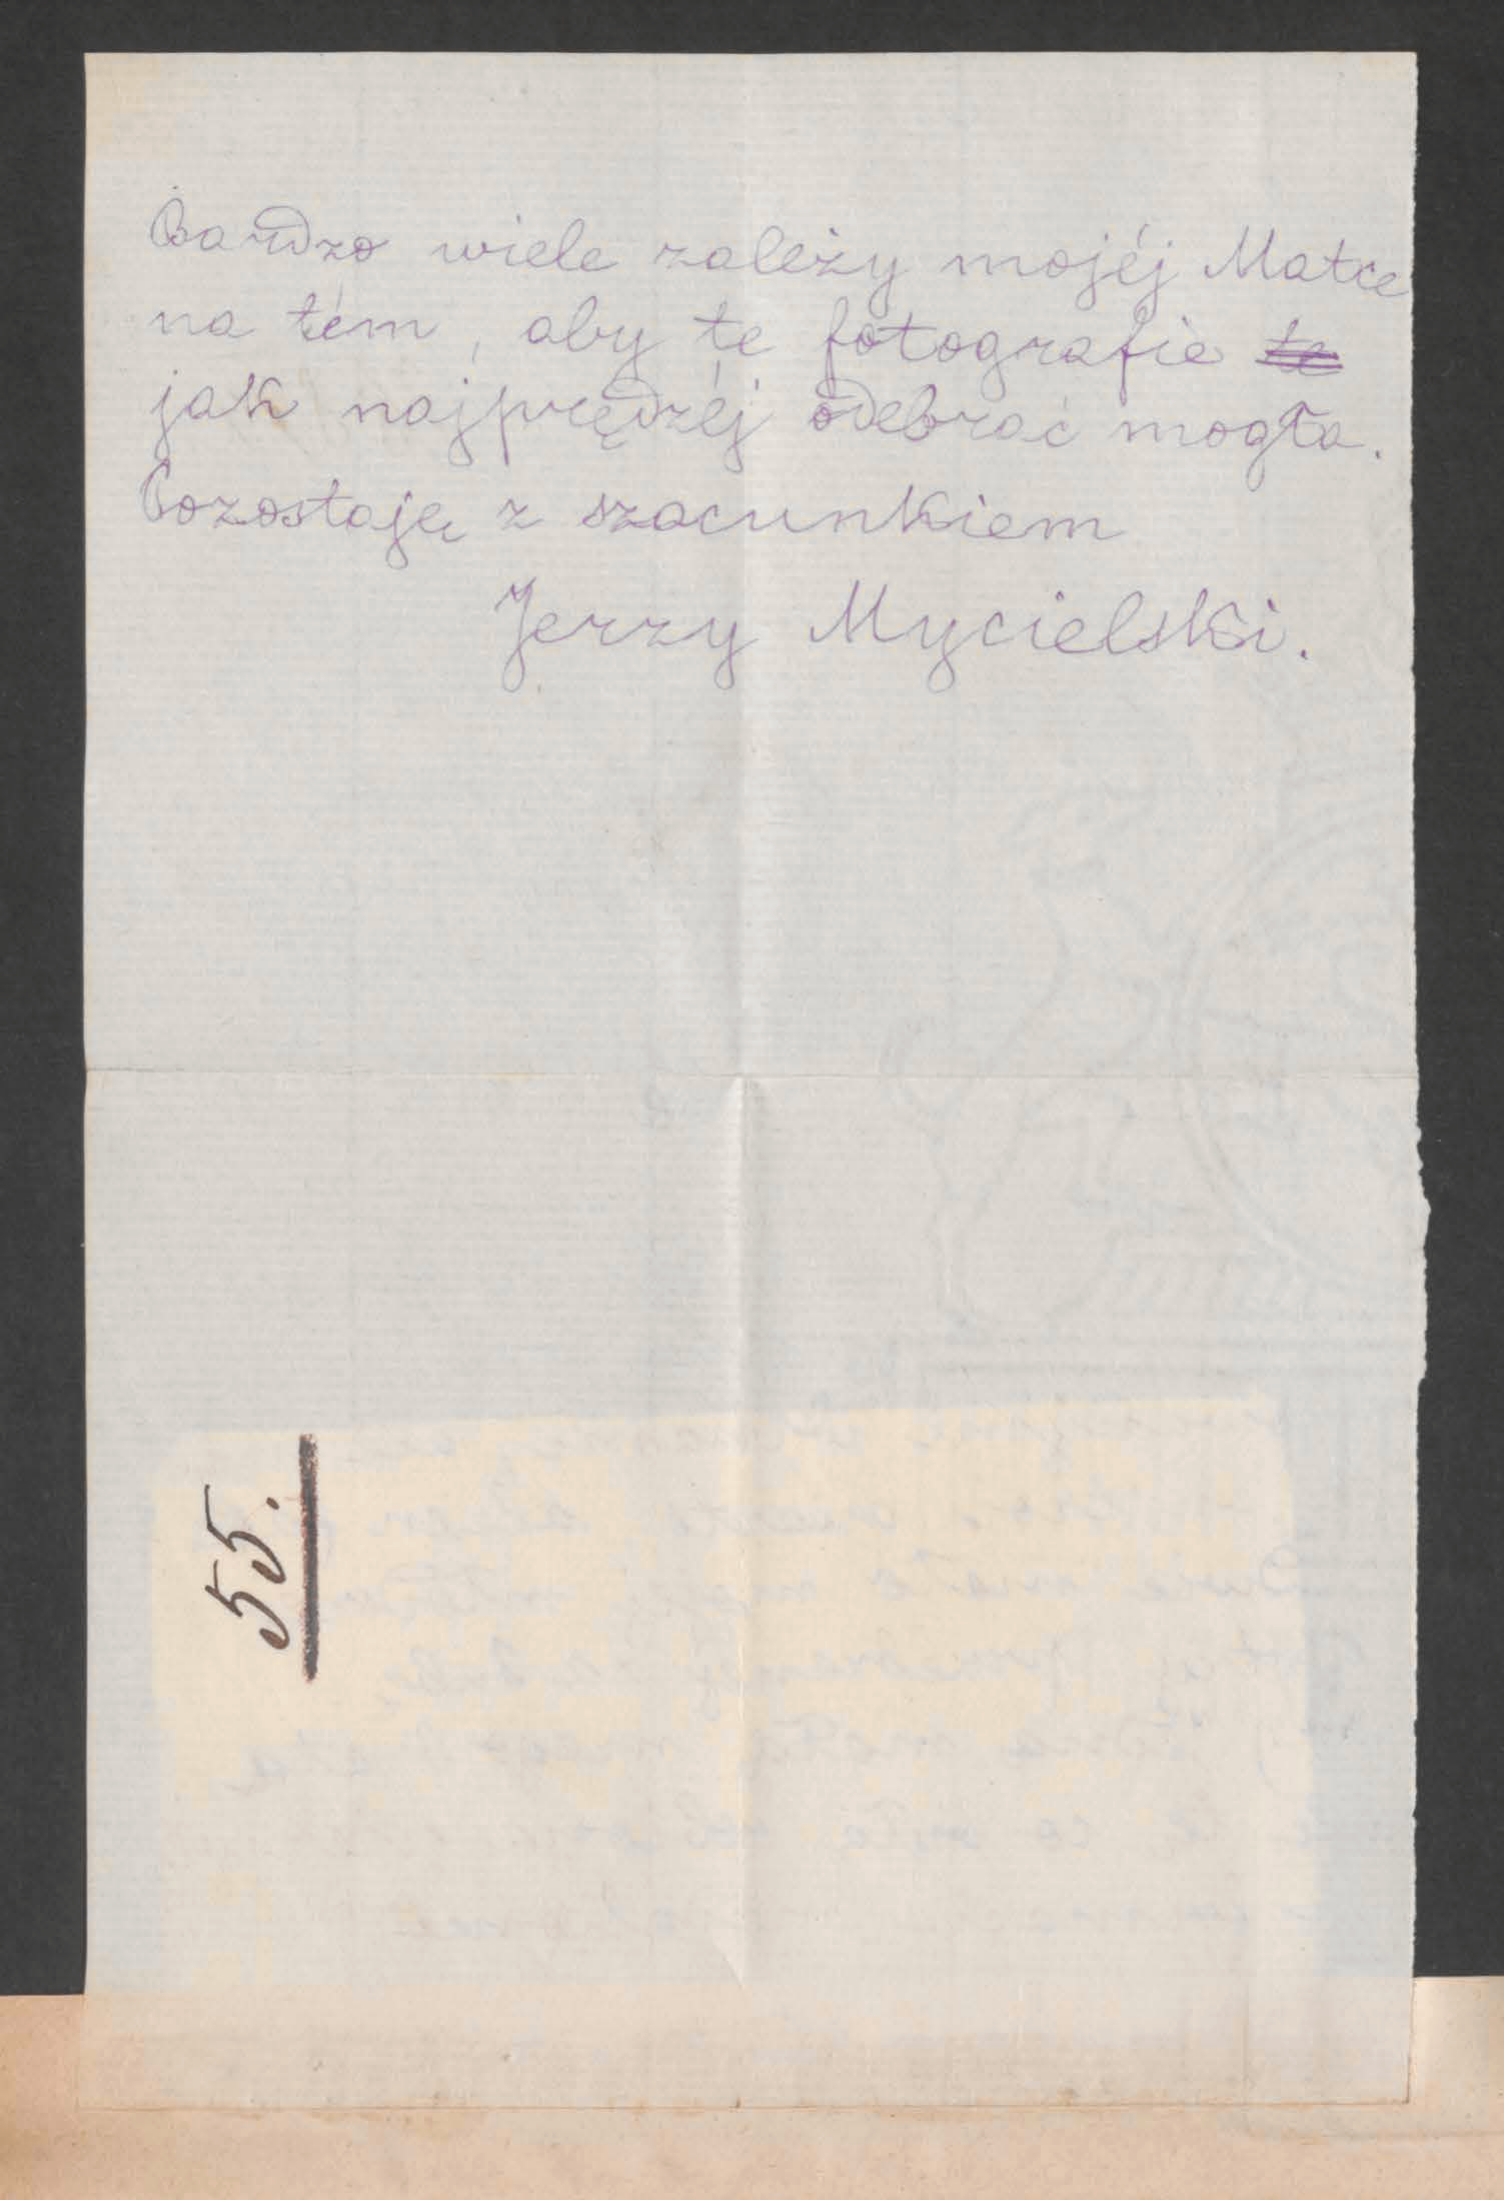 Bardzo wiele zależy mojéj Matce
na tém, aby te fotografie te
jak najprędzéj odebrać mogła.
Pozostaję z szacunkiem
Jerzy Mycielski.
55.